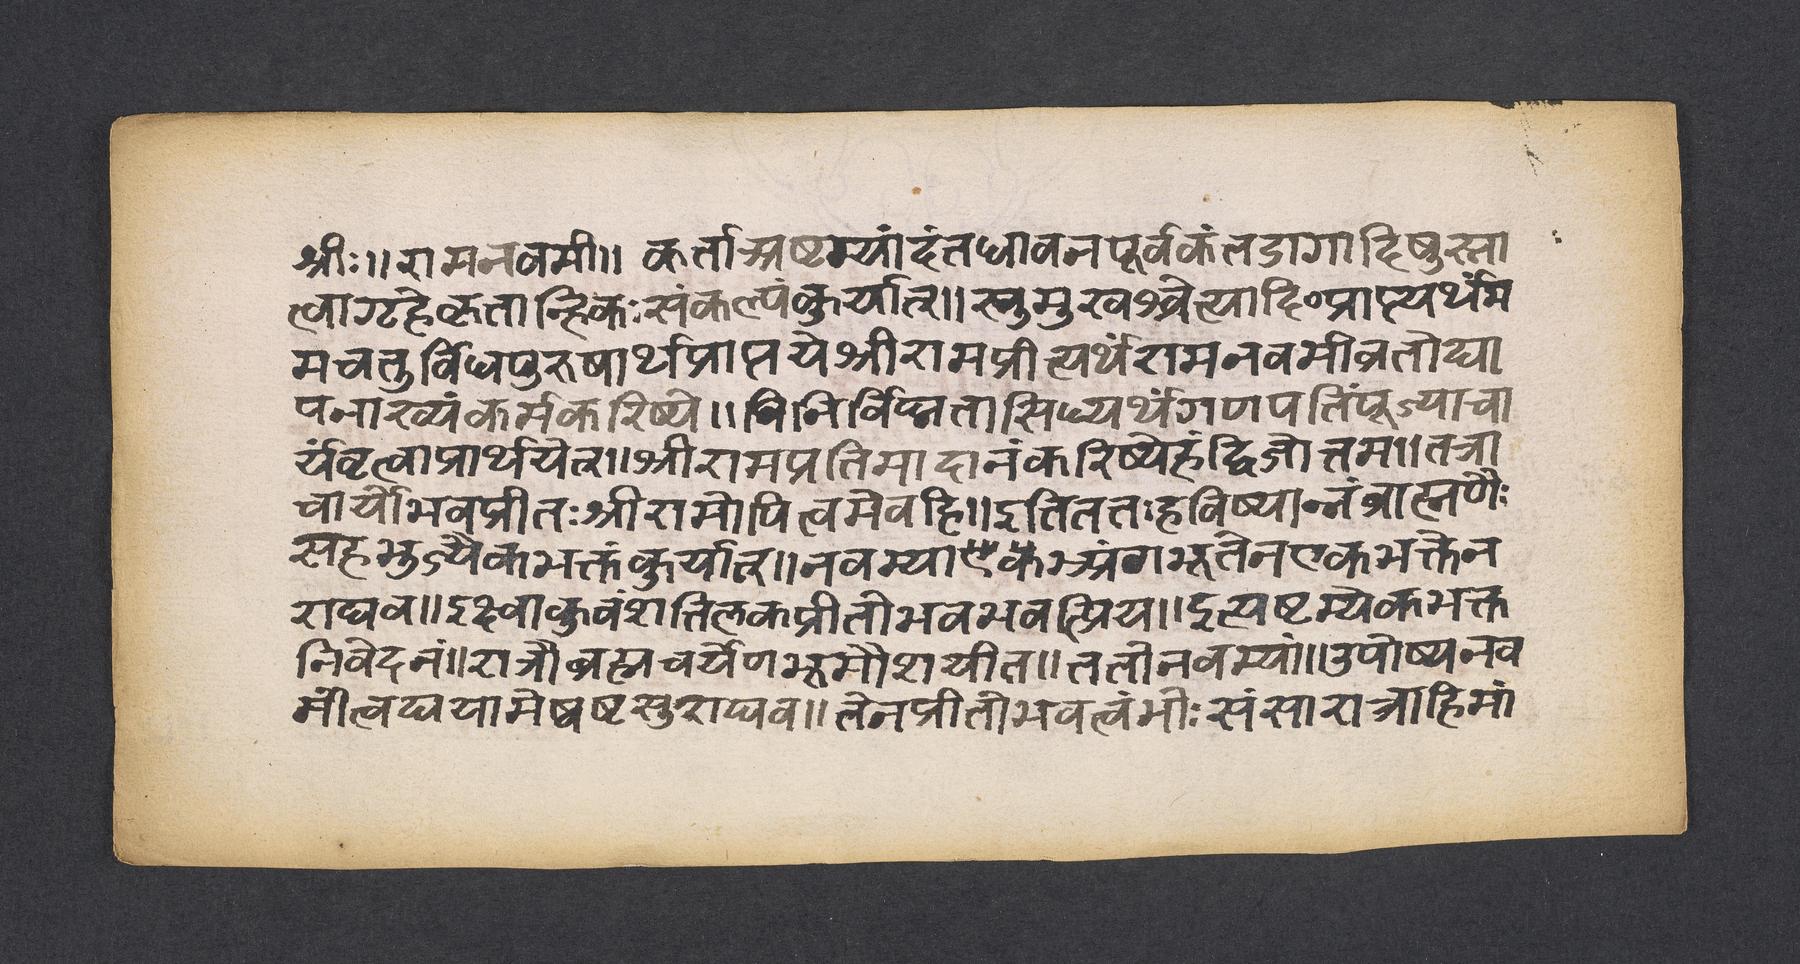 श्रीः॥ रामनवमी॥ कर्ताअष्टम्यांदंतधावनपूर्वकंतडागादिषुस्ना
त्वागृहेकृतान्हिकःसंकल्पंकुर्यात्॥ सुमुखश्चेत्यादि॰प्राप्त्यर्थंम
मचतुर्विधपुरुषार्थप्राप्तयेश्रीरामप्रीत्यर्थंरामनवमीव्रतोद्या
पनाख्यंकर्मकरिष्ये॥ निर्विघ्नतासिध्यर्थंगणपतिंपूज्याचा
र्यंवृत्वाप्रार्थयेत्॥ श्रीरामप्रतिमादानंकरिष्येहंद्विजोत्तम॥ तत्रा
चार्योभवप्रीतःश्रीरामोपित्वमेवहि॥ इतिततःहविष्यान्नंब्राह्मणैः
सहभुज्यैकभक्तंकुर्यात्॥ नवम्या अंगभूतेनएकभक्तेन
राघव॥ इक्ष्वाकुवंशतिलकप्रीतोभवभवत्प्रिय॥ इत्यष्टम्येकभक्त
निवेदनं॥ रात्रौब्रह्मचर्येणभूमौशयीत॥ ततोनवम्यां॥ उपोष्यनव
मींत्वद्ययामेष्वष्टसुराघव॥ तेनप्रीतोभवत्वंभोःसंसारात्त्राहिमां